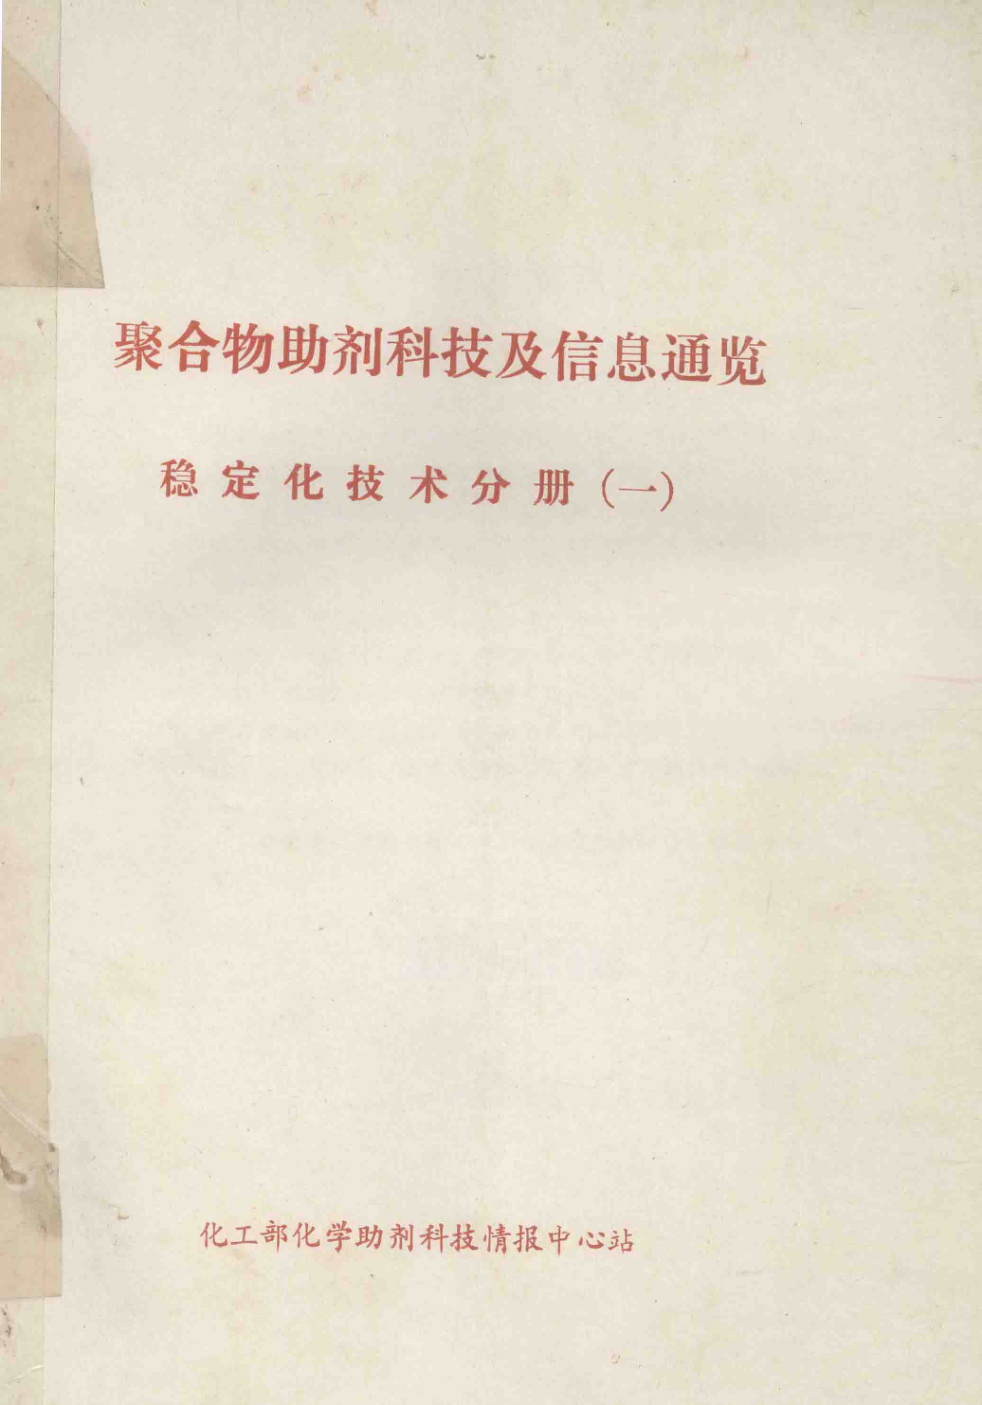 聚合物助剂科技及信息通览
稳定化技术分册(一)
化工部化学助剂科技情报中心站